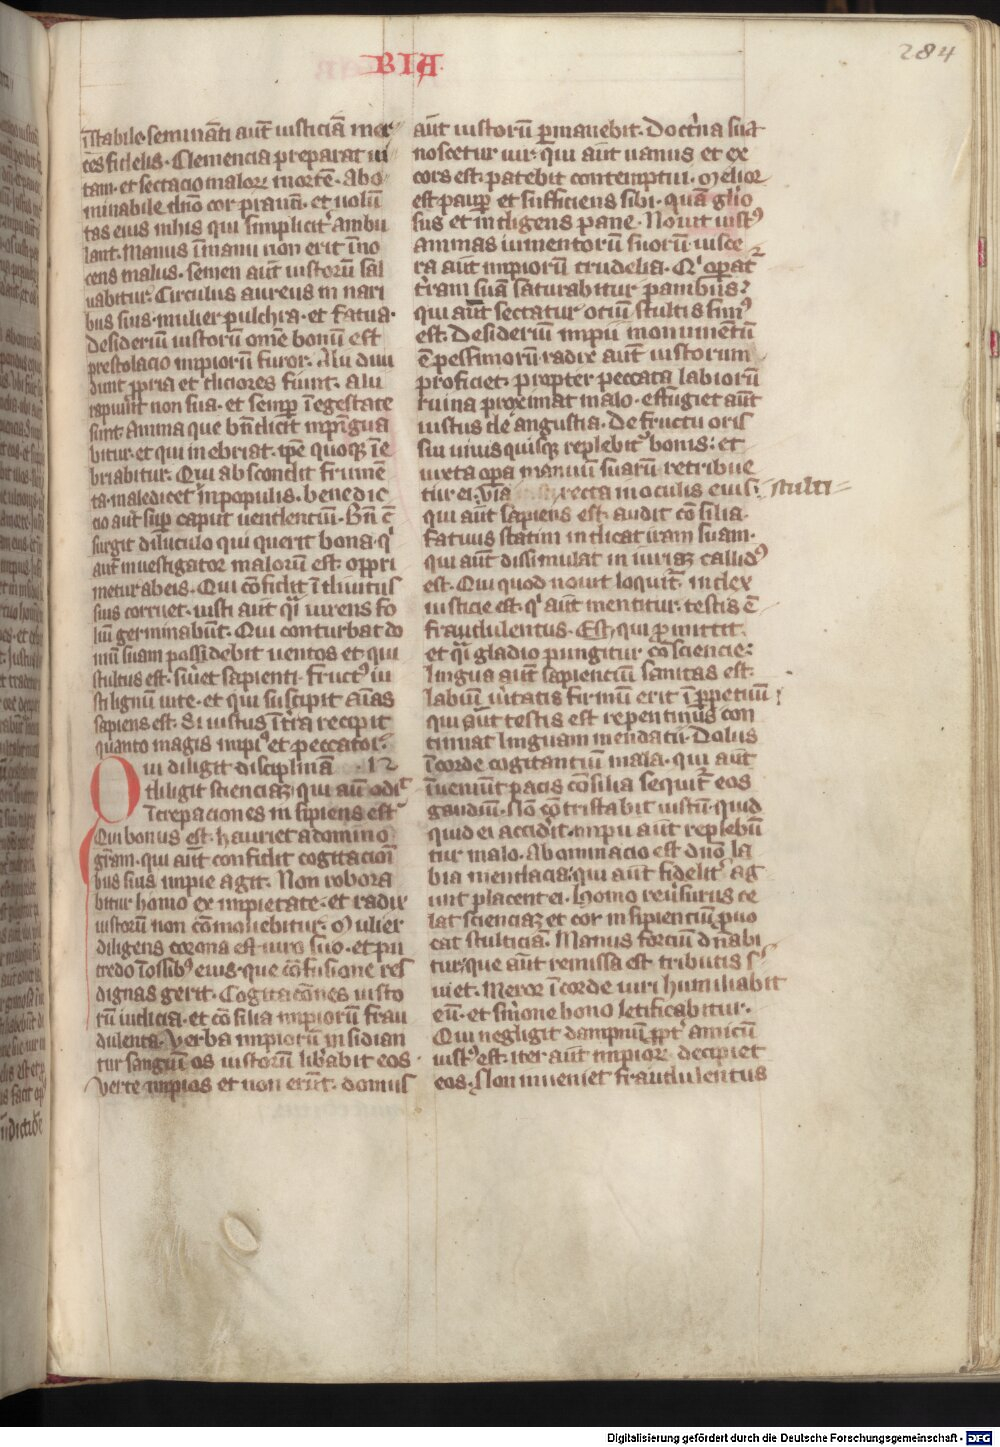 BIA
284
īstabile· seminātī aūt iusticiā mer
ces fidelis· Clemencia preparat ui
tam· et sectacio maloꝝ mortē· Abo
minabile dn̄o cor prauū· et volū
tas eius in hijs qui simplicit͛ ambu
lant· Manus ī manu non erit īno
cens malus· semen aūt iustorū sal
uabitur· Circulus aureus in nari
bus suis· mulier pulchra· et fatua·
desideriū iustorū om̄e bonū est
prestolacio impiorū furor· Alii diui
dunt ꝓpria et diciores fiunt· alii
rapiunt non sua· et semꝑ ī egestate
sunt· Anima que bn̄dicit inpīgua
bitur· et qui inebriat· ip̄e quoqꝫ īe
briabitur· Qui abscondit frumē
ta· maledicet͛ in populis· benedic
cio aūt suꝑ caput uendentiū· Bn̄ cō
surgit diluculo qui querit bona· q͛
aūt inuestigator malorū est· oppri
metur ab eis· Qui cōfidit ī diuitijs
suis corruet· iusti aūt q͛i uirens fo
liū germinabūt· Qui conturbat do
mū suam possidebit uentos et qui
stultus est· s͛uiet sapienti· fruct⁹ iu
sti lignū uite· et qui suscipit aīas
sapiens est· Si iustus ī tr̄a recipit
quanto magis impi⁹ et peccator·
Qui diligit disciplinā ·12
diligit sciencia͡ꝫ· qui aūt odit
īcrepaciones insipiens est
Qui bonus est· hauriet a domino
gr̄am· qui aūt confidit cogitacioni
bus suis impie agit· Non robora
bitur homo ex impietate· et radix
iustorū non cōmouebitur· Mulier
diligens corona est uiro suo· et pu
tredo ī ossib⁹ eius· que cōfusione res
dignas gerit· Cogitacōnes iusto
rū iudicia· et cōsilia impiorū frau
dulenta· Verba impiorū insidian
tur sanguī os iustorū lib͛abit eos·
Verte impios et non erūt· domus
aūt iustorū ꝑmanebit· Doct͛na sua
noscetur uir· qui aūt uanus et ex
cors est· patebit contemptui· Melior
est pauꝑ et sufficiens sibi· quā glīo
sus et indigens pane· Nouit iust⁹
animas iumentorū suorū· uisce
ra aūt impiorū crudelia· Q͛ operat͛
t͛ram suā saturabitur panibus·
qui aūt sectatur ociū stultissim⁹
est· Desideriū impii monumētū
ē pessimorū· radix aūt iustorum
proficiet· propter peccata labiorū
ruina proximat malo· effugiet aūt
iustus de angustia· De fructu oris
sui unusquisqꝫ replebit͛ bonis· et
iuxta oꝑa manuū suarū retribue
tur ei· Via recta in oculis eius· stulti
qui aūt sapiens est· audit cōsilia·
Fatuus statim indicat iram suam·
qui aūt dissimulat iniuria͡ꝫ callid⁹
est· Qui quod nouit loquit͛· index
iusticie est· q͛ aūt mentitur· testis ē
fraudulentus· Est qui ꝓmittit
et q͛i gladio pungitur cōsciencie·
lingua aūt sapienciū sanitas est·
Labiū u͛itatis firmū erit ī ꝑpetuū
qui aūt testis est repentinus con
cinnat linguam mendacii· Dolus
ī corde cogitantiū mala· qui aūt
īeunt pacis cōsilia sequit͛ eos
gaudiū· Nō cōtristabit iustū· quid
quid ei accid͛it· impii aūt replebū
tur malo· Abominacio est dn̄o la
bia mendacia· qui aūt fidelit͛ ag
unt placent ei· Homo u͛sutus ce
lat sciencia͡ꝫ et cor insipientiū ꝓuo
cat stulticiā· Manus forciū dn̄abi
tur· que aūt remissa est tributis s͛
uiet· Meror ī corde uiri humiliabit
eū· et s͛mone bono letificabitur·
Qui negligit dampnū ꝓpt͛ amicū
iust⁹ est· iter aūt impioꝝ decipiet
eos· Non inueniet fraudulentus
Digitalisierung gefördert durch die Deutsche Forschungsgemeinschaft - DFG